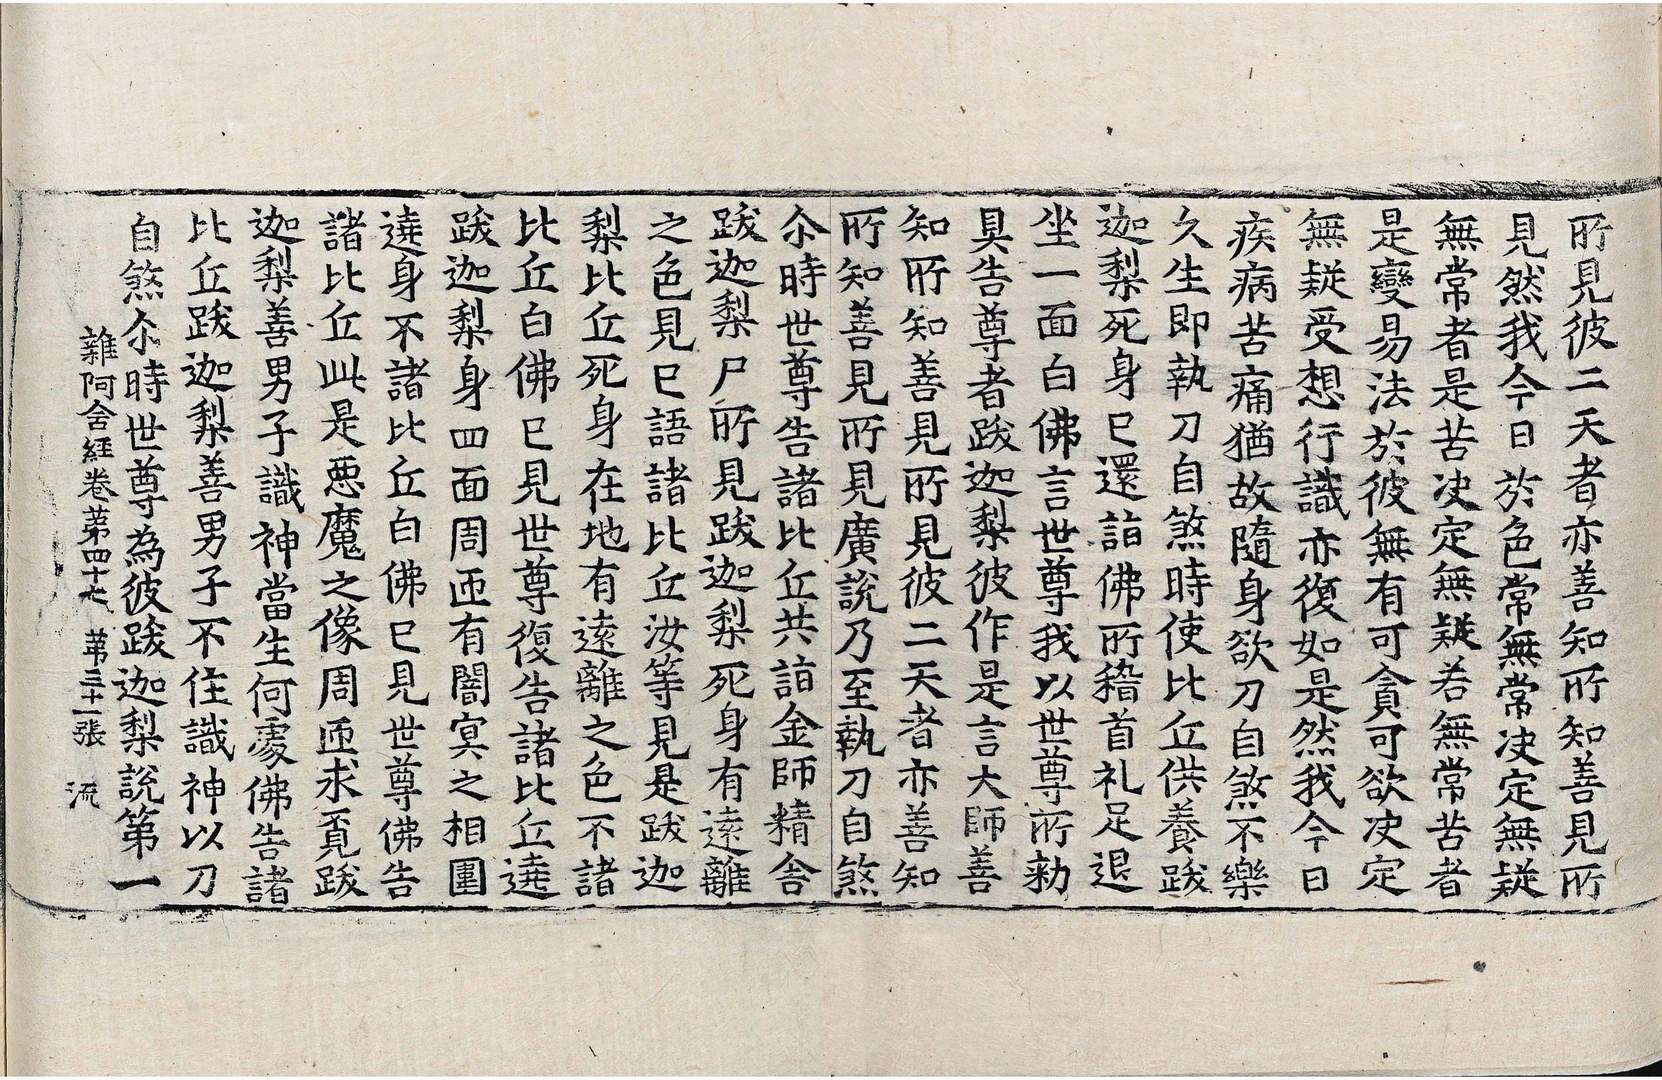 所見彼二天者亦善知所知善見所
見然我今日於色常無常决定無疑
無常者是苦决定無疑若無常苦者
是變易法於彼無有可貪可欲决定
無疑受想行識亦復如是然我今日
疾病苦痛猶故隨身欲刀自煞不樂
久生即執刀自煞時使比丘供養跋
迦梨死身已還詣佛所稽首礼足退
坐一面白佛言世尊我以世尊所勑
具告尊者跋迦梨彼作是言大師善
知所知善見所見彼二天者亦善知
所知善見所見廣說乃至執刀自煞
尒時世尊告諸比丘共詣金師精舍
跋迦梨尸所見跋迦梨死身有遠離
之色見已語諸比丘汝等見是跋迦
梨比丘死身在地有遠離之色不諸
比丘白佛已見世尊復告諸比丘遶
跋迦梨身四面周匝有闇冥之相圍
遶身不諸比丘白佛已見世尊佛告
諸比丘此是惡魔之像周匝求覓跋
迦梨善男子識神當生何處佛告諸
比丘跋迦梨善男子不住識神以刀
自煞尒時世尊為彼跋迦梨說第一
雜阿含經卷苐四十七 苐三十一張 流